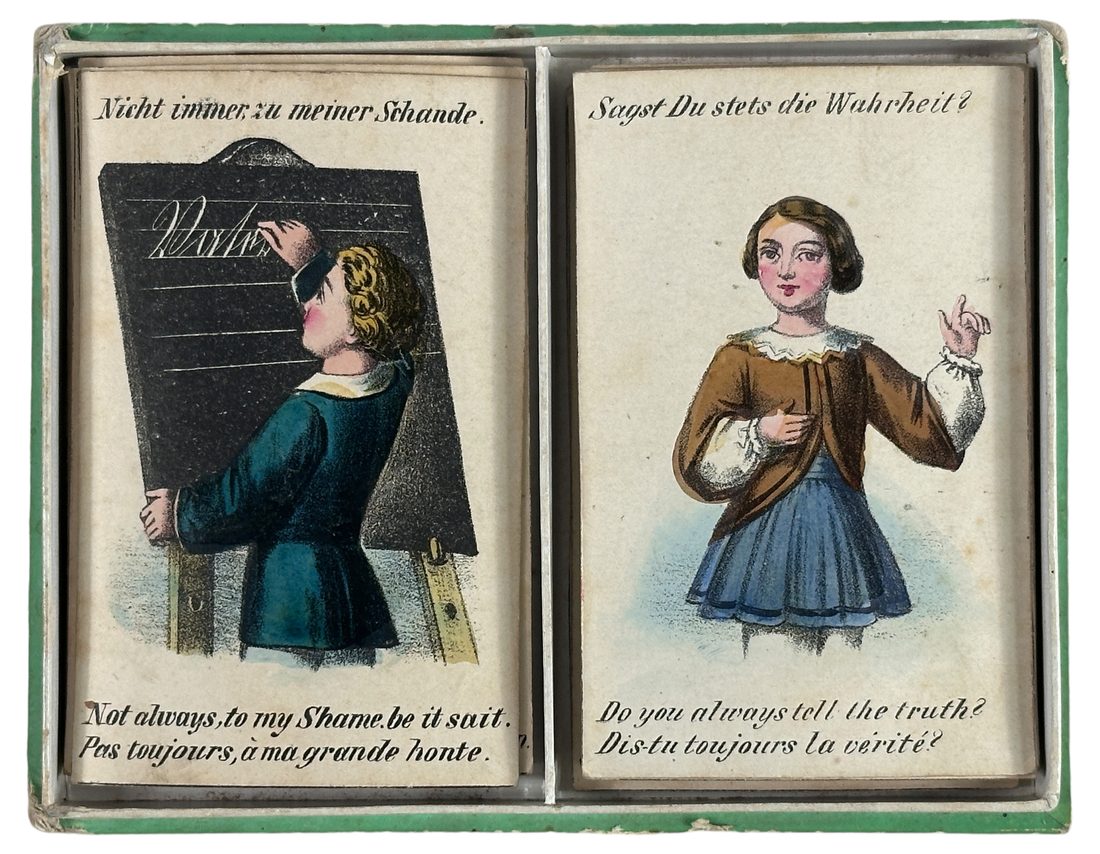 Nicht immer, zu meiner Schande.
Vater
Not always, to my Shame. be it sait.
Pas toujours, à ma grande honte.
n.
Sagst Du stets die Wahrheit?
Do you always tell the truth?
Dis-tu toujours la vérité?